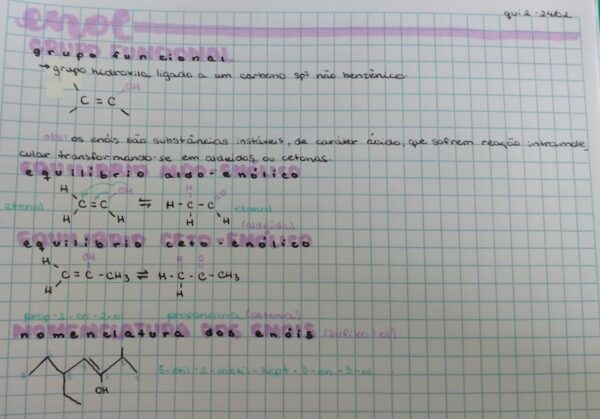 qui 2 - 24b2
enol
grupo funcional
→ grupo hidroxila ligado a um carbono sp² não benzênico
OH
C = C
obs: os enóis são substâncias instáveis, de caráter ácido, que sofrem reação intramole-
cular transformando-se em aldeídos ou cetonas.
equilíbrio aldo-enólico
H OH H O
etenol C = C ⇌ H - C - C etanal
H H H H (aldeído)
equilíbrio ceto-enólico
H OH H O
C = C - CH3 ⇌ H - C - C - CH3
H H
prop-1-en-2-ol propanona (cetona)
nomenclatura dos enóis (sufixo: ol)
OH
5-etil-2-metil-hept-3-en-3-ol